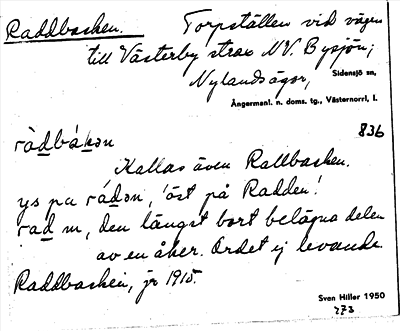 Raddbacken. Torpställen vid vägen
till Västerby strax N.V. Bysjön,
Nylandsågor, Sidensjö sn,
Ångermanl. n. doms. tg., Västernorrl. l.
836
ràdbákən
Kallas även Rallbacken.
ys pa rádən, 'öst på Radden'.
rad m, den längst bort belägna delen
av en åker. Ordet ej levande.
Raddbacken, jr 1915.
Sven Hiller 1950
273